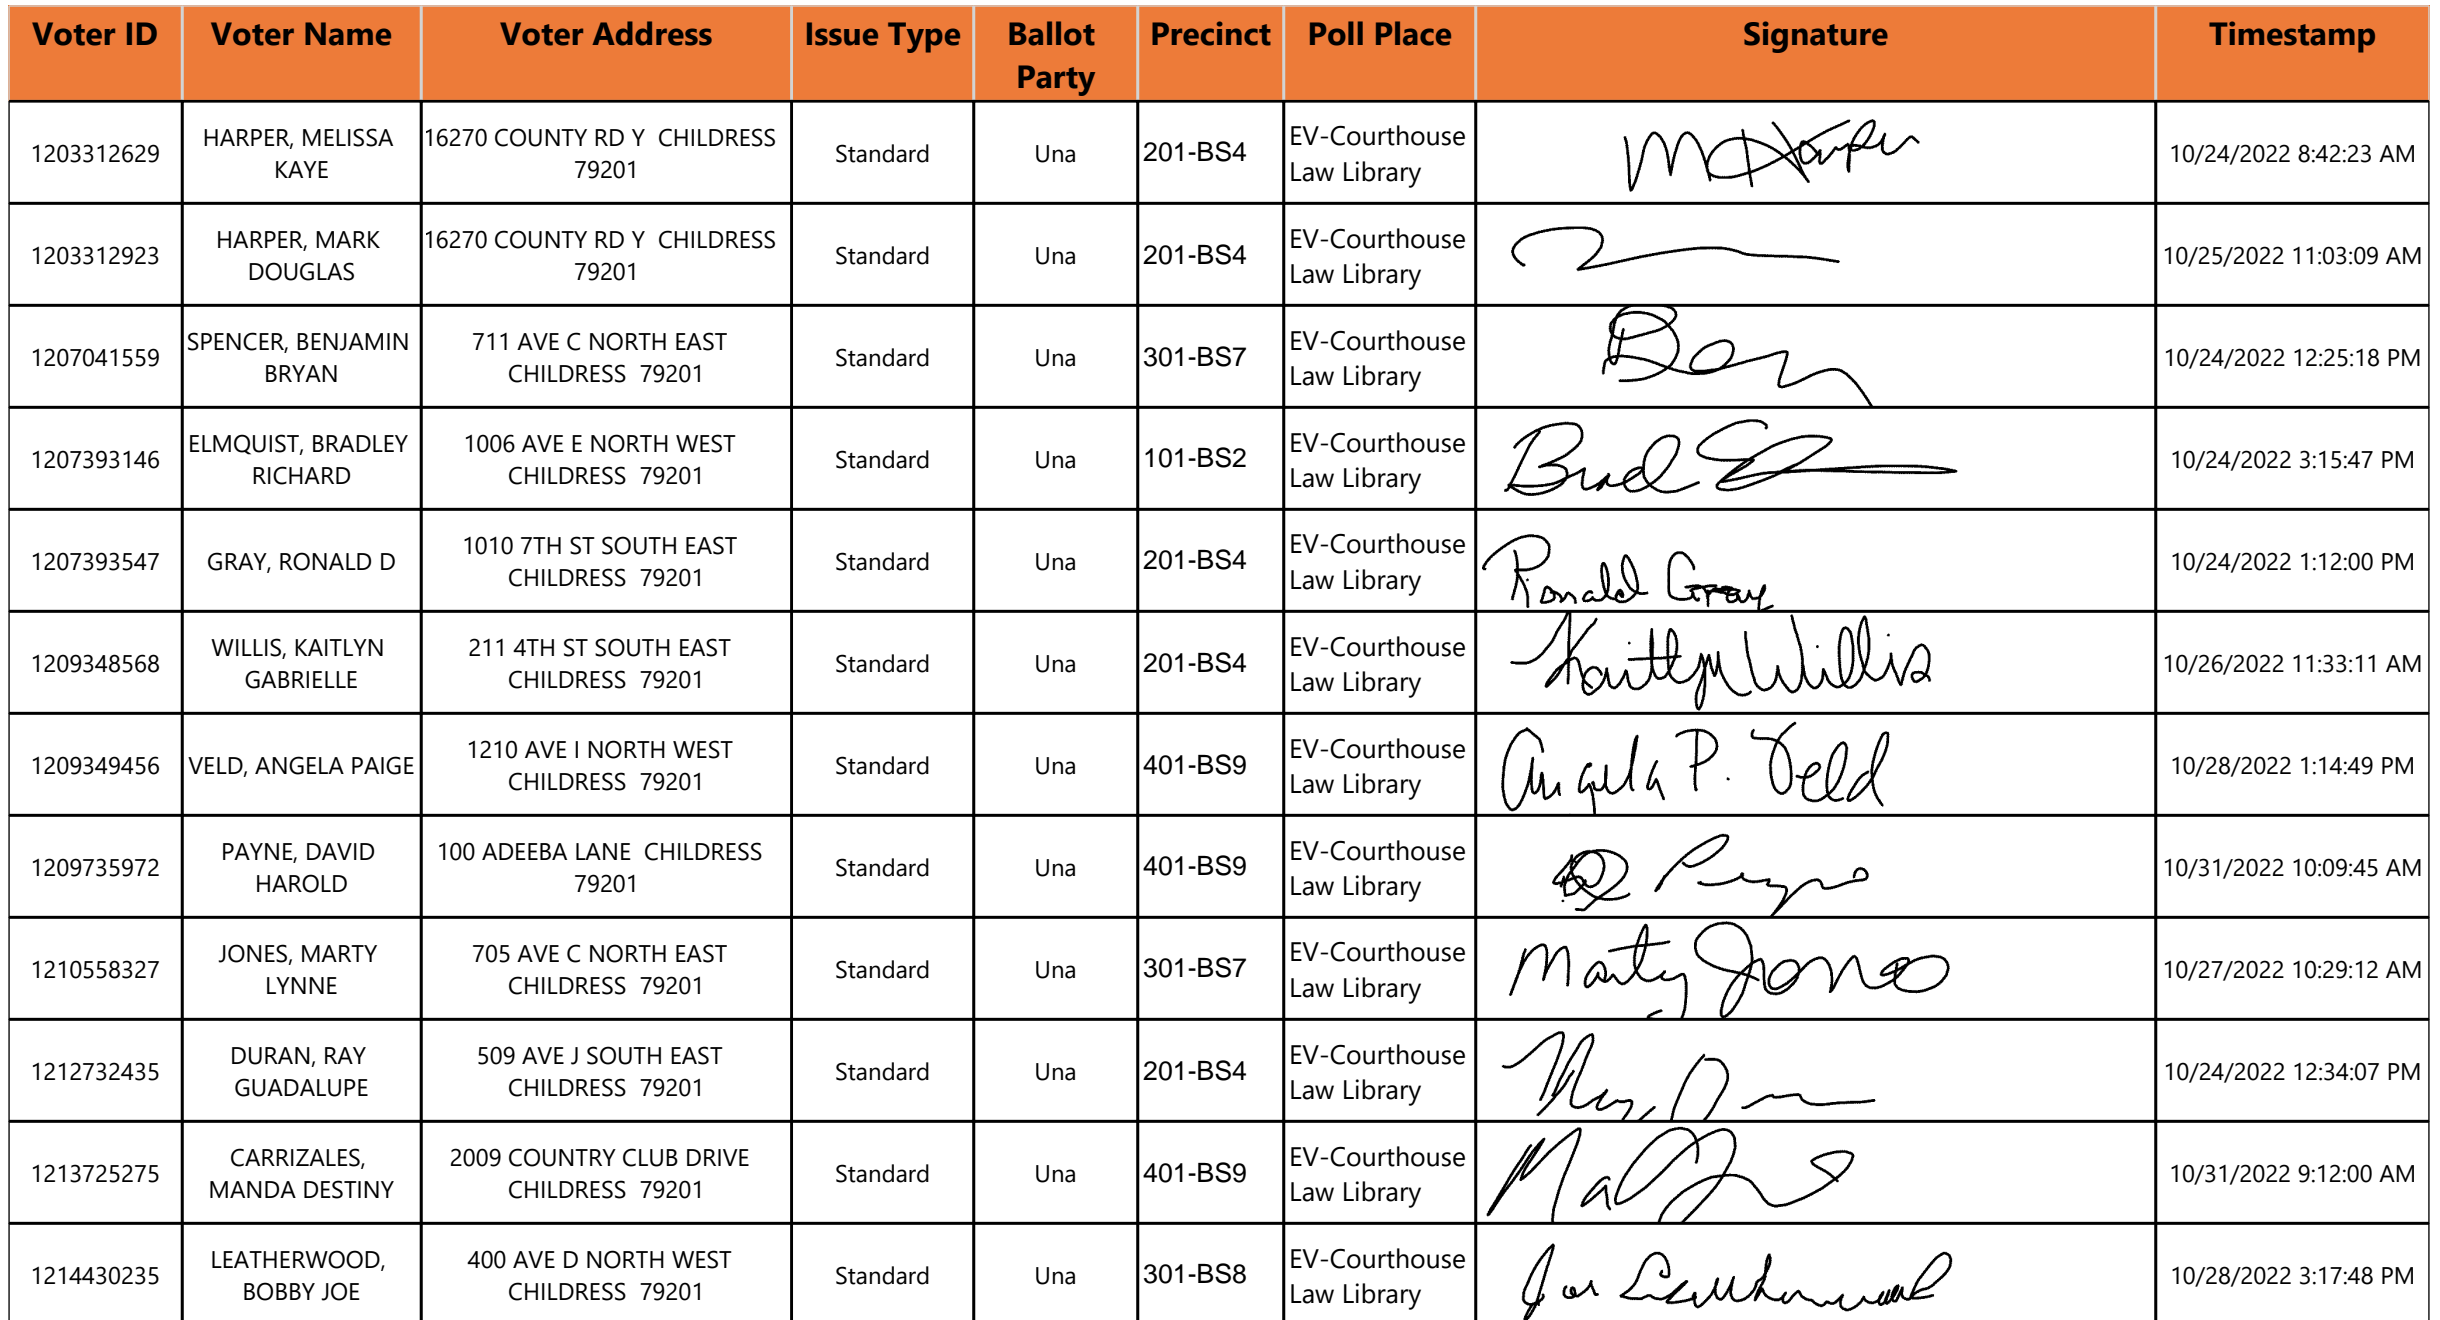 Voter ID Voter Name Voter Address Issue Type Ballot Party Precinct Poll Place Signature Timestamp
1203312629 HARPER, MELISSA KAYE 16270 COUNTY RD Y CHILDRESS 79201 Standard Una 201-BS4 EV-Courthouse Law Library M Harper 10/24/2022 8:42:23 AM
1203312923 HARPER, MARK DOUGLAS 16270 COUNTY RD Y CHILDRESS 79201 Standard Una 201-BS4 EV-Courthouse Law Library 10/25/2022 11:03:09 AM
1207041559 SPENCER, BENJAMIN BRYAN 711 AVE C NORTH EAST CHILDRESS 79201 Standard Una 301-BS7 EV-Courthouse Law Library Ben 10/24/2022 12:25:18 PM
1207393146 ELMQUIST, BRADLEY RICHARD 1006 AVE E NORTH WEST CHILDRESS 79201 Standard Una 101-BS2 EV-Courthouse Law Library Brad 10/24/2022 3:15:47 PM
1207393547 GRAY, RONALD D 1010 7TH ST SOUTH EAST CHILDRESS 79201 Standard Una 201-BS4 EV-Courthouse Law Library Ronald Gray 10/24/2022 1:12:00 PM
1209348568 WILLIS, KAITLYN GABRIELLE 211 4TH ST SOUTH EAST CHILDRESS 79201 Standard Una 201-BS4 EV-Courthouse Law Library Kaitlyn Willis 10/26/2022 11:33:11 AM
1209349456 VELD, ANGELA PAIGE 1210 AVE I NORTH WEST CHILDRESS 79201 Standard Una 401-BS9 EV-Courthouse Law Library Angela P. Veld 10/28/2022 1:14:49 PM
1209735972 PAYNE, DAVID HAROLD 100 ADEEBA LANE CHILDRESS 79201 Standard Una 401-BS9 EV-Courthouse Law Library 10/31/2022 10:09:45 AM
1210558327 JONES, MARTY LYNNE 705 AVE C NORTH EAST CHILDRESS 79201 Standard Una 301-BS7 EV-Courthouse Law Library Marty Jones 10/27/2022 10:29:12 AM
1212732435 DURAN, RAY GUADALUPE 509 AVE J SOUTH EAST CHILDRESS 79201 Standard Una 201-BS4 EV-Courthouse Law Library Ray 10/24/2022 12:34:07 PM
1213725275 CARRIZALES, MANDA DESTINY 2009 COUNTRY CLUB DRIVE CHILDRESS 79201 Standard Una 401-BS9 EV-Courthouse Law Library 10/31/2022 9:12:00 AM
1214430235 LEATHERWOOD, BOBBY JOE 400 AVE D NORTH WEST CHILDRESS 79201 Standard Una 301-BS8 EV-Courthouse Law Library Joe Leatherwood 10/28/2022 3:17:48 PM